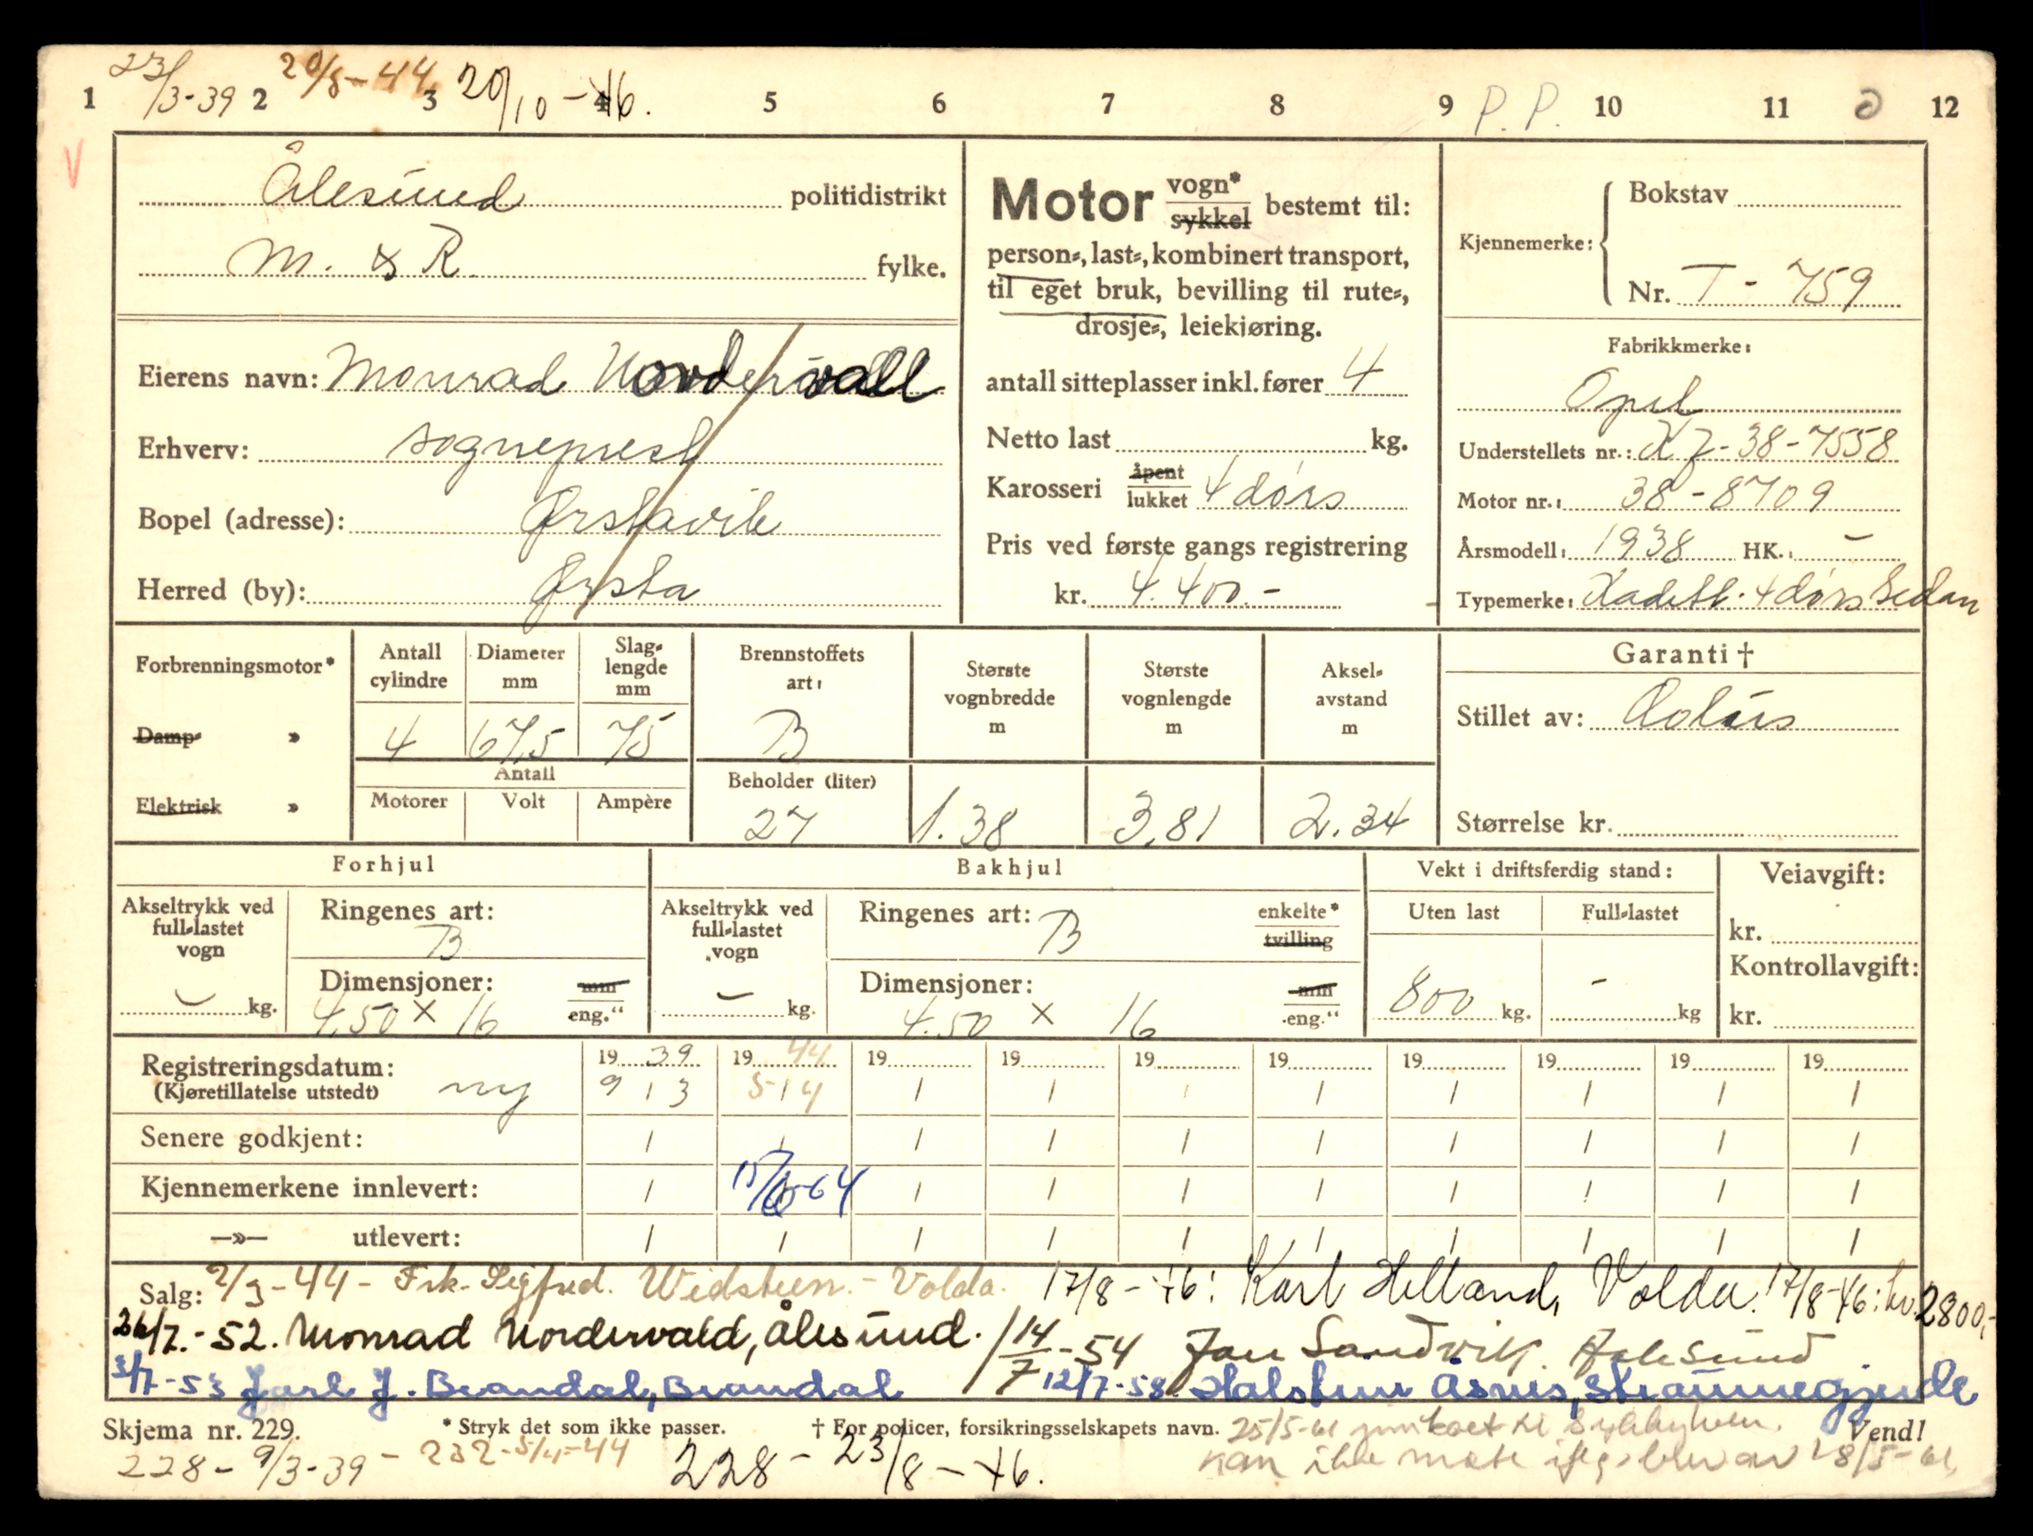 1 23/3-39 2 20/5-44 3 20/10-46. 4 5 6 7 8 9 P.P. 10 11 12
V
Ålesund politidistrikt
M. & R. fylke.
Eierens navn: Monrad Nordervall
Erhverv: sogneprest
Bopel (adresse): Ørstavik
Herred (by): Ørsta
Motor vogn* sykkel bestemt til:
person-, last-, kombinert transport,
til eget bruk, bevilling til rute-,
drosje-, leiekjøring.
antall sitteplasser inkl. fører 4
Netto last kg.
Karosseri åpent lukket 4 dörs
Pris ved første gangs registrering
kr. 4.400.-
Kjennemerke: Bokstav
Nr. T-759
Fabrikkmerke:
Opel
Understellets nr.: KJ-38-7558
Motor nr.: 38-8709
Årsmodell: 1938 HK.: -
Typemerke: Kadett. 4 dörs Sedan
Forbrenningsmotor*
Damp- »
Elektrisk »
Antall cylindre
4
Diameter mm
67,5
Slaglengde mm
75
Antall
Motorer Volt Ampère
Brennstoffets art:
B
Beholder (liter)
27
Største vognbredde m
1.38
Største vognlengde m
3,81
Akselavstand m
2.34
Garanti †
Stillet av: Polaris
Størrelse kr.
Forhjul
Akseltrykk ved full-lastet vogn
- kg.
Ringenes art:
B
Dimensjoner: mm eng."
4.50 x 16
Bakhjul
Akseltrykk ved full-lastet vogn
- kg.
Ringenes art: B enkelte* tvilling
Dimensjoner: mm eng."
4.50 x 16
Vekt i driftsferdig stand:
Uten last Full-lastet
800 kg. - kg
Veiavgift:
kr.
Kontrollavgift:
kr.
Registreringsdatum: 1939 1944 19 19 19 19 19 19 19 19
(Kjøretillatelse utstedt) ny 9/3 5/4 / / / / / / / /
Senere godkjent: / / / / / / / / / /
Kjennemerkene innlevert: / 15/6-64 / / / / / / / /
—»— utlevert: / / / / / / / / / /
Salg: 2/3-44 - Frk. Sigfrid. Widsteen. - Volda. 17/8-46: Karl Helland, Volda. 17/8-46: kr. 2800,-
26/7.-52. Monrad Nordervald, Ålesund. 14/7-54 Jan Sandvik. Aalesund
3/7-53 Jarl J. Brandal, Brandal 12/7-58. Halstein Åsnes, Straumegjerde
Skjema nr. 229. * Stryk det som ikke passer. † For policer, forsikringsselskapets navn. Vend!
25/5-61 innkaet til Sykkylven.
228 - 9/3-39 - 232 - 5/4-44 228 - 23/8-46. kan ikke møte brev av 28/5-61